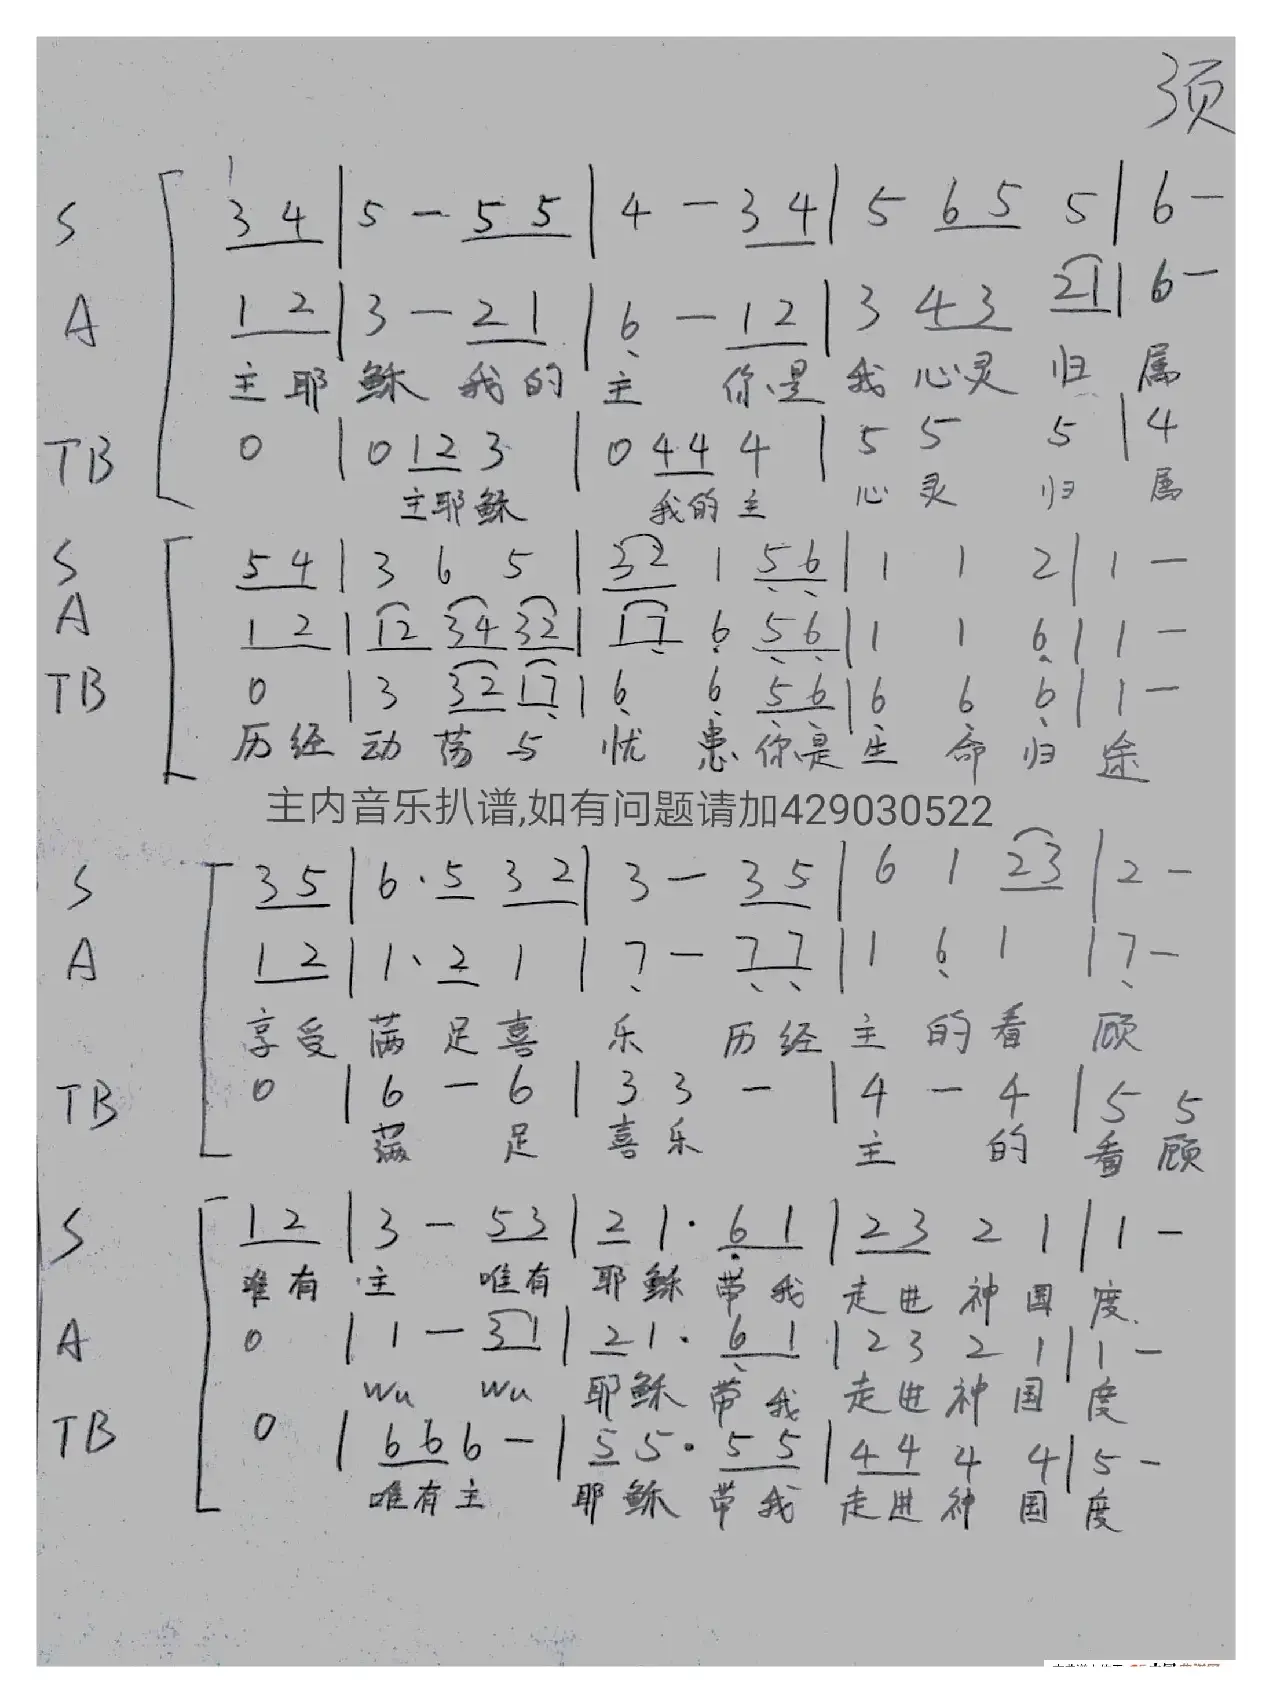 3页
S 3 4 | 5 - 5 5 | 4 - 3 4 | 5 6 5 5 | 6 -
A 1 2 | 3 - 2 1 | 6 - 1 2 | 3 4 3 2 1 | 6 -
主 耶 稣 我 的 主 你 是 我 心 灵 归 属
TB 0 | 0 1 2 3 | 0 4 4 4 | 5 5 5 | 4
主 耶 稣 我 的 主 心 灵 归 属
S 5 4 | 3 6 5 | 3 2 1 5 6 | 1 1 2 | 1 -
A 1 2 | 1 2 3 4 3 2 | 1 7 6 5 6 | 1 1 6 | 1 -
TB 0 | 3 3 2 1 7 | 6 6 5 6 | 6 6 6 | 1 -
历 经 动 荡 与 忧 患 你 是 生 命 归 途
主内音乐扒谱,如有问题请加429030522
S 3 5 | 6 · 5 3 2 | 3 - 3 5 | 6 1 2 3 | 2 -
A 1 2 | 1 · 2 1 | 7 - 7 7 | 1 6 1 | 7 -
享 受 满 足 喜 乐 历 经 主 的 看 顾
TB 0 | 6 - 6 | 3 3 - | 4 - 4 | 5 5
满 足 喜 乐 主 的 看 顾
S 1 2 | 3 - 5 3 | 2 1 · 6 1 | 2 3 2 1 | 1 -
唯 有 主 唯 有 耶 稣 带 我 走 进 神 国 度
A 0 | 1 - 3 1 | 2 1 · 6 1 | 2 3 2 1 | 1 -
wu wu 耶 稣 带 我 走 进 神 国 度
TB 0 | 6 6 6 - | 5 5 · 5 5 | 4 4 4 4 | 5 -
唯 有 主 耶 稣 带 我 走 进 神 国 度